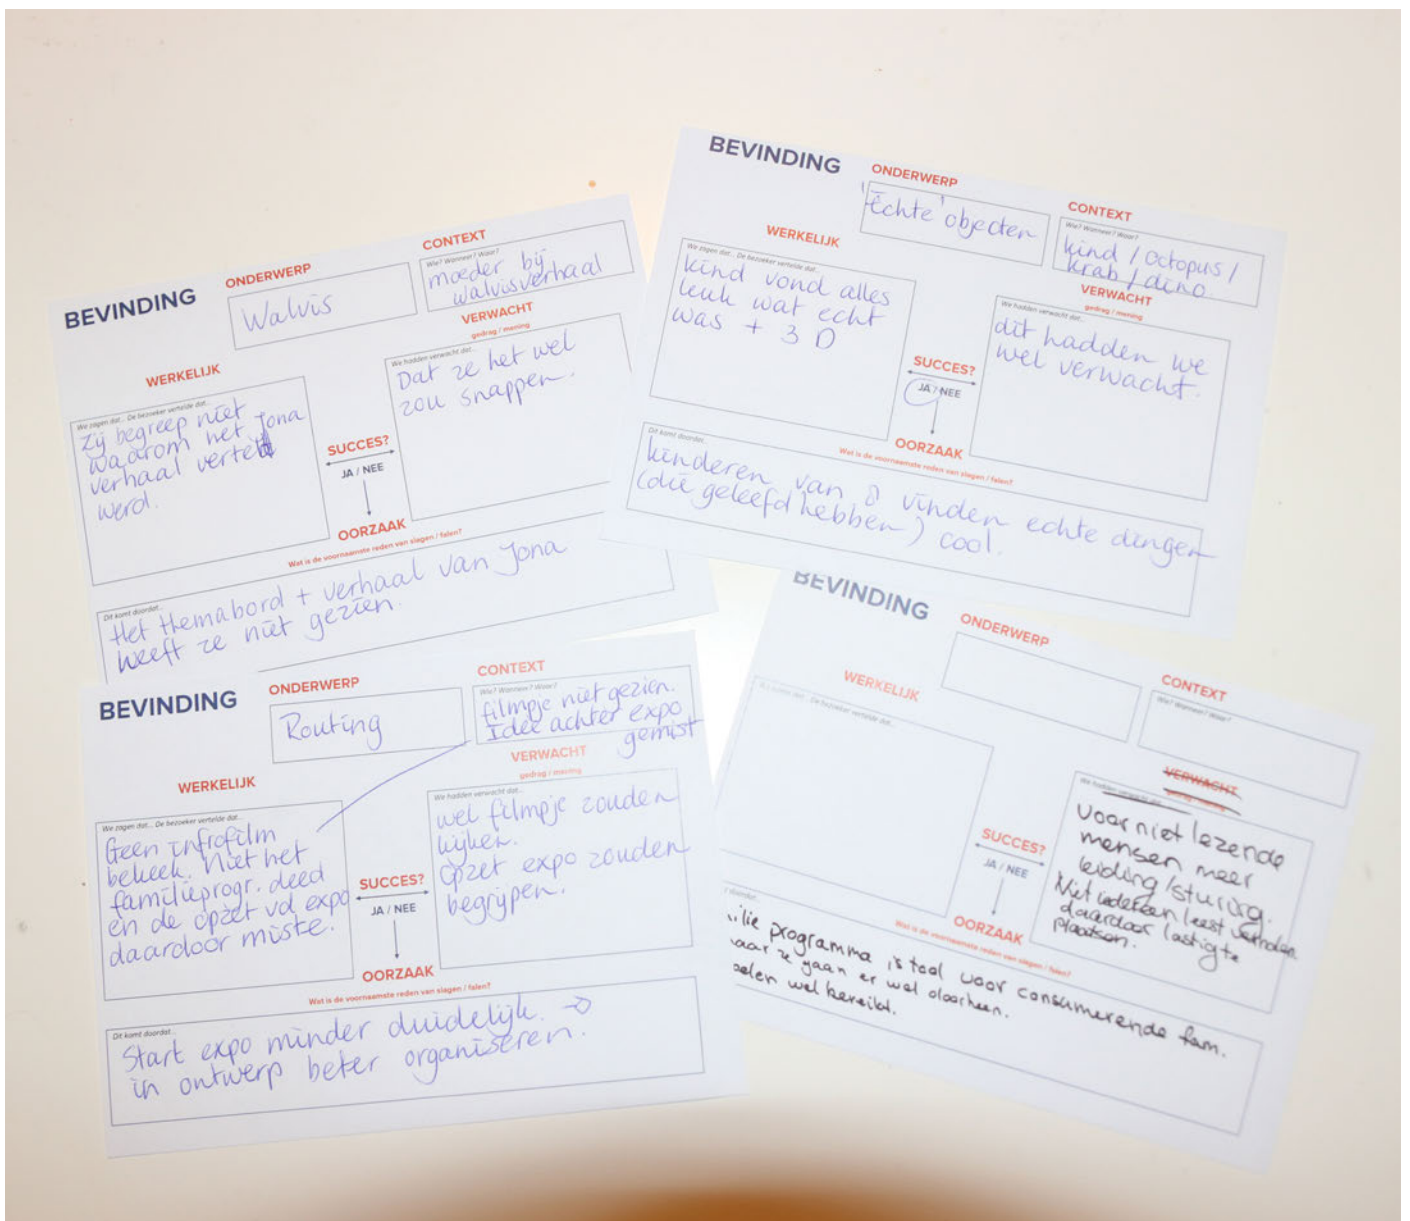 BEVINDING
ONDERWERP
Walvis
CONTEXT
Wie? Wanneer? Waar?
moeder bij
walvisverhaal
WERKELIJK
We zagen dat... De bezoeker vertelde dat...
Zij begreep niet
waarom het Jona
verhaal verteld
werd.
SUCCES?
JA / NEE
VERWACHT
gedrag / mening
We hadden verwacht dat...
Dat ze het wel
zou snappen.
OORZAAK
Wat is de voornaamste reden van slagen / falen?
Dit komt doordat...
Het themabord + verhaal van Jona
heeft ze niet gezien.
BEVINDING
ONDERWERP
'Echte' objecten
CONTEXT
Wie? Wanneer? Waar?
kind / octopus /
krab / dino
WERKELIJK
We zagen dat... De bezoeker vertelde dat...
kind vond alles
leuk wat echt
was + 3D
SUCCES?
JA / NEE
VERWACHT
gedrag / mening
We hadden verwacht dat...
dit hadden we
wel verwacht.
OORZAAK
Wat is de voornaamste reden van slagen / falen?
Dit komt doordat...
kinderen van 8 vinden echte dingen
(die geleefd hebben) cool.
BEVINDING
ONDERWERP
Routing
CONTEXT
Wie? Wanneer? Waar?
filmpje niet gezien.
Idee achter expo
gemist
WERKELIJK
We zagen dat... De bezoeker vertelde dat...
Geen introfilm
bekeek. Niet het
familieprogr. deed
en de opzet vd expo
daardoor miste.
SUCCES?
JA / NEE
VERWACHT
gedrag / mening
We hadden verwacht dat...
wel filmpje zouden
kijken.
Opzet expo zouden
begrijpen.
OORZAAK
Wat is de voornaamste reden van slagen / falen?
Dit komt doordat...
Start expo minder duidelijk. →
in ontwerp beter organiseren.
BEVINDING
ONDERWERP
CONTEXT
Wie? Wanneer? Waar?
WERKELIJK
We zagen dat... De bezoeker vertelde dat...
SUCCES?
JA / NEE
VERWACHT
gedrag / mening
We hadden verwacht dat...
Voor niet lezende
mensen meer
leiding / sturing.
Niet iedereen leest verhalen
daardoor lastig te
plaatsen.
OORZAAK
Wat is de voornaamste reden van slagen / falen?
doordat...
ilie programma is tool voor consumerende fam.
maar ze gaan er wel doorheen.
oelen wel bereikt.